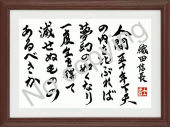 織田信長
人間五十年下天
の内を比ぶれば
夢幻の如くなり
一度生を得て
滅せぬものの
あるべきか